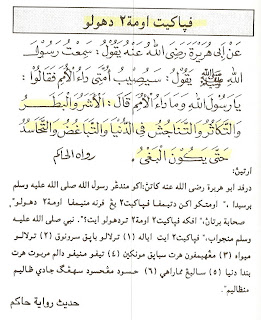 فپاكيت اومة٢ دهولو
عَنْ أَبِي هُرَيْرَةَ رَضِيَ اللهُ عَنْهُ يَقُولُ: سَمِعْتُ رَسُولَ
اللهِ ﷺ يَقُولُ: سَيُصِيبُ أُمَّتِي دَاءُ الْأُمَمِ فَقَالُوا:
يَارَسُولَ اللهِ وَمَا دَاءُ الْأُمَمِ قَالَ: الْأَشَرُ وَالْبَطَرُ
وَالتَّكَاثُرُ وَالتَّنَاجُشُ فِي الدُّنْيَا وَالتَّبَاغُضُ وَالتَّحَاسُدُ
حَتَّى يَكُونَ الْبَغْيُ. رواه الحاكم
ارتيڽ:
درفد ابو هريرة رضي الله عنه كاتڽ:اكو مندڠر رسول الله صلى الله عليه وسلم
برسبدا ، " اومتكو اكن دتيمفا فپاكيت٢ يڠ فرنه منيمفا اومة٢ دهولو".
صحابة برتاڽ،" افكه فپاكيت٢ اومة٢ تردهولو ايت؟". نبي صلى الله عليه
وسلم منجواب،" فپاكيت٢ ايت اياله (١) ترلالو باپق سرونوق (٢) ترلالو
ميواه (٣) مڠهيمفون هرت سباپق موڠكين (٤) تيفو منيفو دالم مربوت هرت
بندا دنيا (٥) ساليڠ ممارهي (٦) حسود مڠحسود سهيڠݢ جادي ظاليم
منظاليم".
حديث رواية حاكم